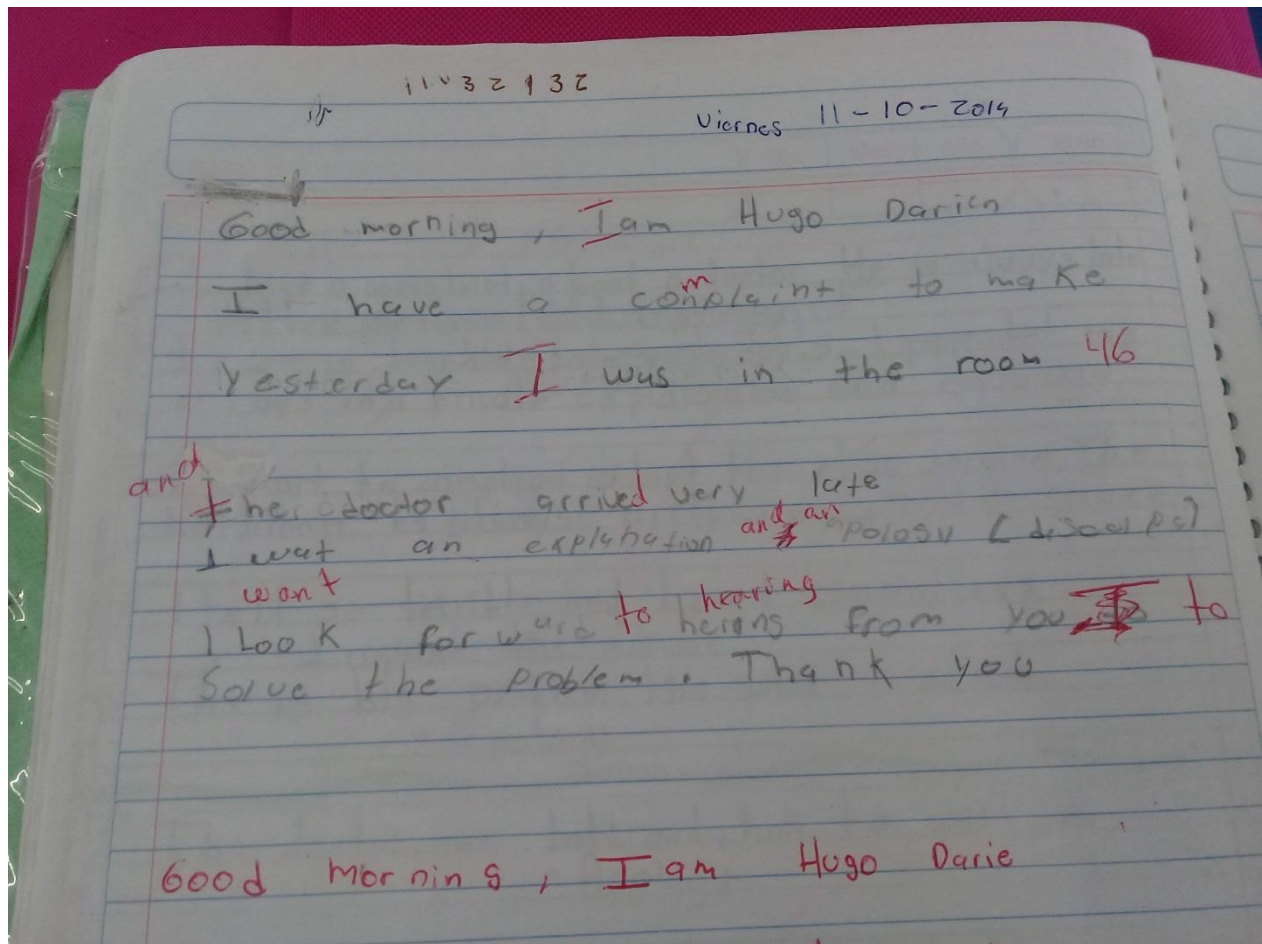 Viernes 11-10-2019
Good morning, I am Hugo Darien
I have a commplaint to make
Yesterday I was in the room 46
and
the doctor arrived very late
I wat an explanation and an apology (disculpa)
want
I Look forward to hearing herang from you to
Solve the problem. Thank you
Good morning, I am Hugo Darie